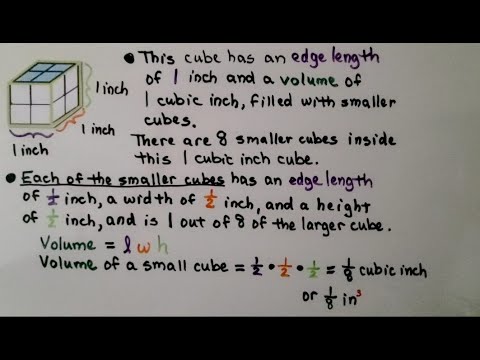 • This cube has an edge length
of 1 inch and a volume of
1 cubic inch, filled with smaller
cubes.
There are 8 smaller cubes inside
this 1 cubic inch cube.
1 inch
1 inch
1 inch
• Each of the smaller cubes has an edge length
of 1/2 inch, a width of 1/2 inch, and a height
of 1/2 inch, and is 1 out of 8 of the larger cube.
Volume = l w h
Volume of a small cube = 1/2 • 1/2 • 1/2 = 1/8 cubic inch
or 1/8 in³